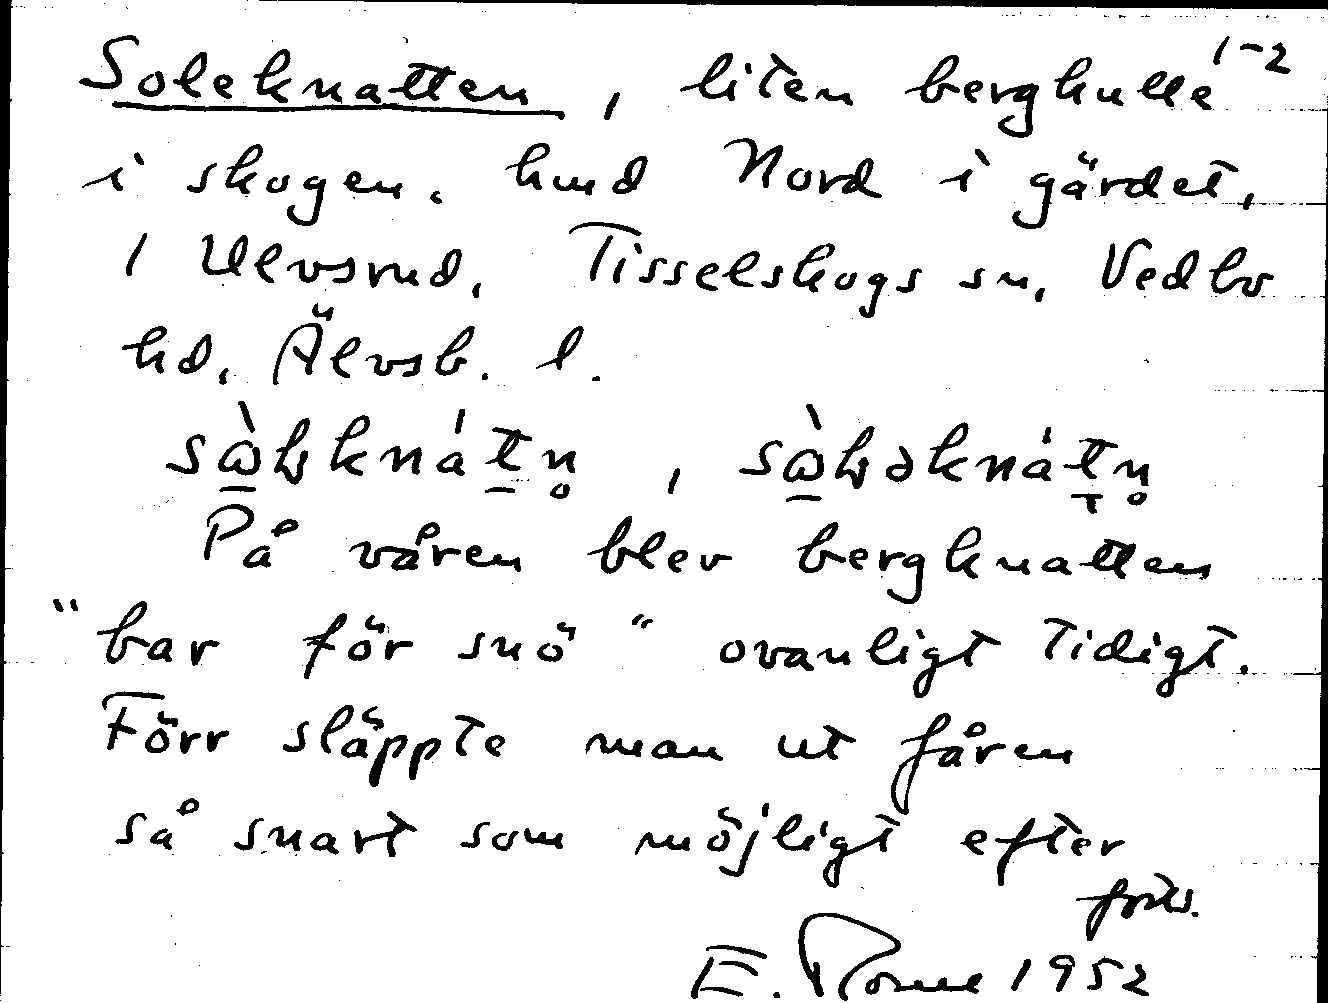 Soleknatten, liten bergkulle 1-2
i skogen. hmd Nord i gärdet,
1 Ulvsrud, Tisselskogs sn, Vedbo
hd, Älvsb. l.
På våren blev bergknatten
"bar för snö" ovanligt tidigt.
Förr släppte man ut fåren
så snart som möjligt efter
forts.
E. 1952